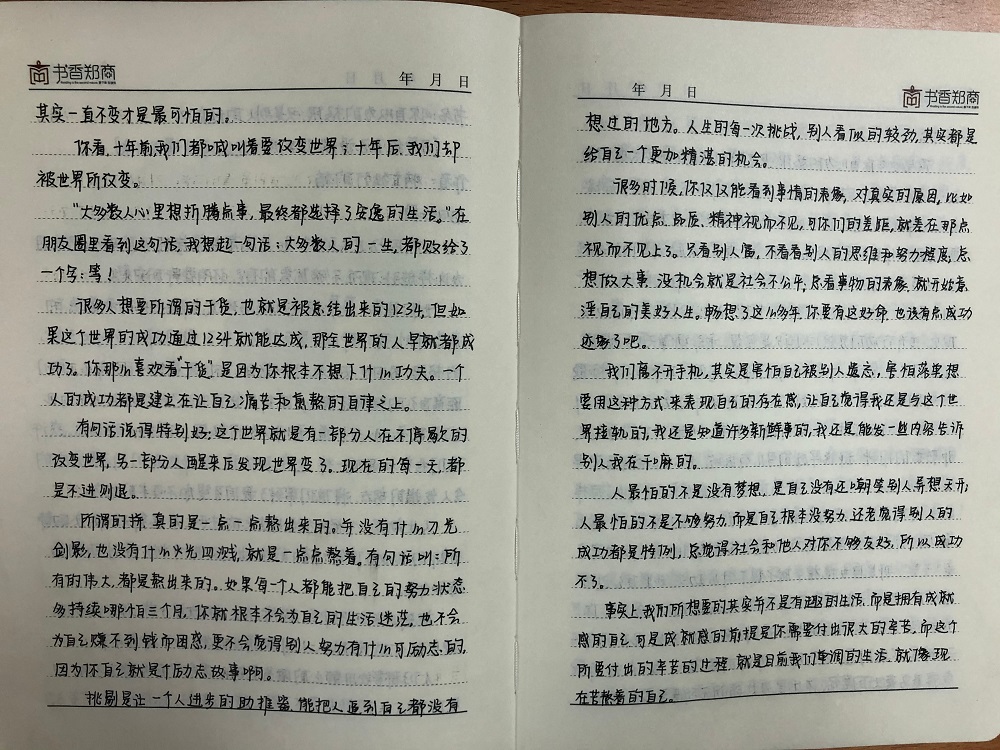 书香郑商
年 月 日
其实一直不变才是最可怕的。
你看,十年前我们都喊叫着要改变世界;十年后,我们却
被世界所改变。
"大多数人心里想折腾点事,最终都选择了安逸的生活。"在
朋友圈里看到这句话,我想起一句话:大多数人的一生,都败给了
一个字:等!
很多人想要所谓的干货,也就是被总结出来的1234,但如
果这个世界的成功通过1234就能达成,那全世界的人早就都成
功了。你那么喜欢看"干货",是因为你根本不想下什么功夫。一个
人的成功都是建立在让自己痛苦和煎熬的自律之上。
有句话说得特别好:这个世界就是有一部分人在不停歇的
改变世界,另一部分人醒来后发现世界变了。现在的每一天,都
是不进则退。
所谓的拼,真的是一点一点熬出来的。并没有什么刀光
剑影,也没有什么火光四溅,就是一点点熬着。有句话叫:所
有的伟大,都是熬出来的。如果每一个人都能把自己的努力状态
多持续哪怕三个月,你就根本不会为自己的生活迷茫,也不会
为自己赚不到钱而困惑,更不会觉得别人努力有什么可励志的,
因为你自己就是个励志故事啊。
挑剔是让一个人进步的助推器,能把人逼到自己都没有
年 月 日
书香郑商
想过的地方。人生的每一次挑战,别人看似的较劲,其实都是
给自己一个更加精湛的机会。
很多时候,你仅仅能看到事情的表像,对真实的原因,比如
别人的优点、品质、精神视而不见,可你们的差距,就差在那点
视而不见上了。只看别人富,不看看别人的思维和努力程度,总
想做大事,没机会就是社会不公平,总看事物的表像,就开始意
淫自己的美好人生。畅想了这么多年,你要有这好命,也该有点成功
迹象了吧。
我们离不开手机,其实是害怕自己被别人遗忘,害怕落里想
要用这种方式来表现自己的存在感,让自己觉得我还是与这个世
界接轨的,我还是知道许多新鲜事的,我还是能发一些内容告诉
别人我在干嘛的。
人最怕的不是没有梦想,是自己没有还嘲笑别人异想天开;
人最怕的不是不够努力,而是自己根本没努力,还老觉得别人的
成功都是特例,总觉得社会和他人对你不够友好,所以成功
不了。
事实上,我们所想要的其实并不是有趣的生活,而是拥有成就
感的自己,可是成就感的前提是你需要付出很大的辛苦,而这个
所要付出的辛苦的过程,就是目前我们单调的生活,就像现
在苦熬着的自己。